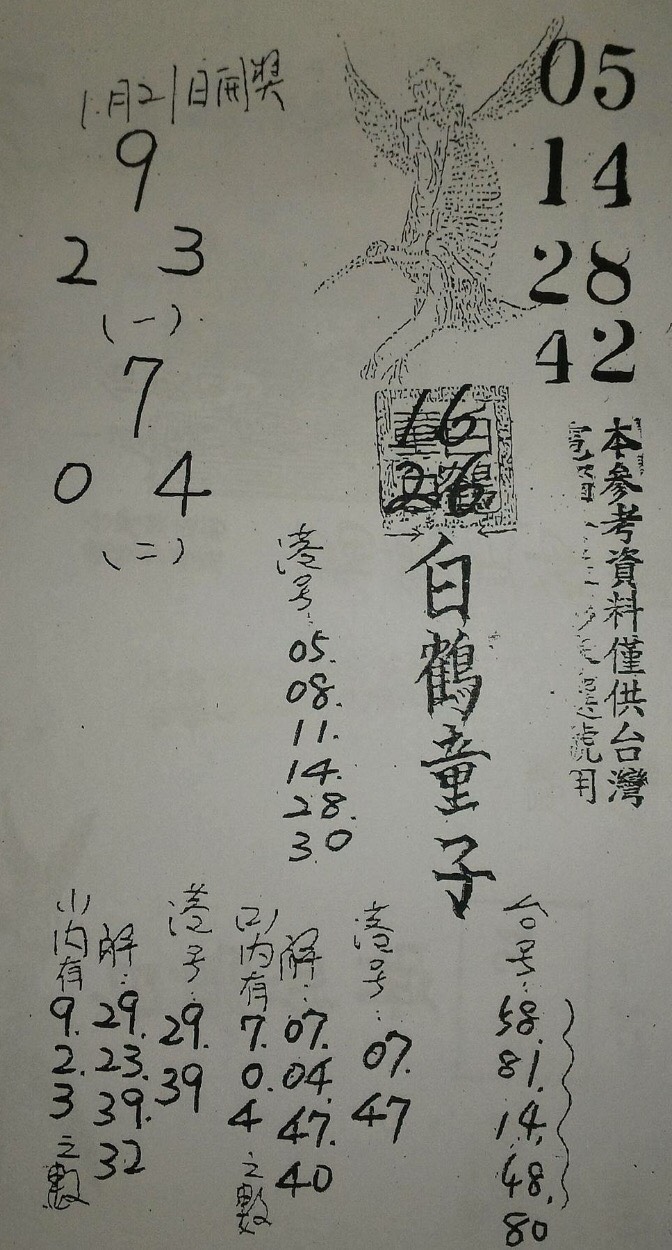 1月21日開獎
9
2 3
(一)
7
0 4
(二)
05
14
28
42
16
26
本參考資料僅供台灣
號用
白鶴童子
港号:
05.
08.
11.
14.
28.
30
台号:
58.
81.
14.
48.
80
港号:
07.
47
解:
07.
04.
47.
40
(2)內有
7.
0.
4
之數
港号:
29.
39
解:
29.
23.
39.
32
(1)內有
9.
2.
3
之數